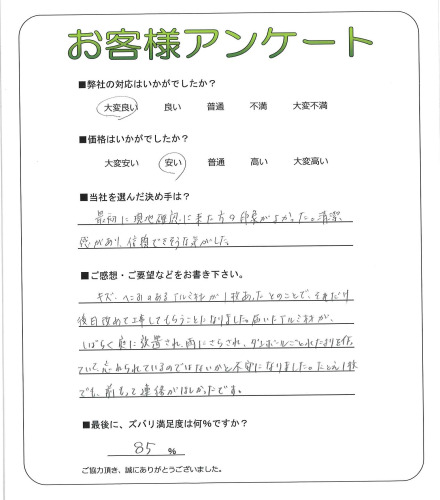 お客様アンケート
■弊社の対応はいかがでしたか？
大変良い 良い 普通 不満 大変不満
■価格はいかがでしたか？
大変安い 安い 普通 高い 大変高い
■当社を選んだ決め手は？
最初に現地確認に来た方の印象がよかった。清潔
感があり、信頼できそうな気がした。
■ご感想・ご要望などをお書き下さい。
キズ、へこみのあるアルミ材が1枚あったとのことで、それだけ
後日改めて工事してもらうことになりました。届いたアルミ材が、
しばらく庭に放置され、雨にさらされ、ダンボールごと
ていて、忘れられているのではないかと不安になりました。たとえ1枚
でも、前もって連絡がほしかったです。
■最後に、ズバリ満足度は何%ですか？
85 %
ご協力頂き、誠にありがとうございました。